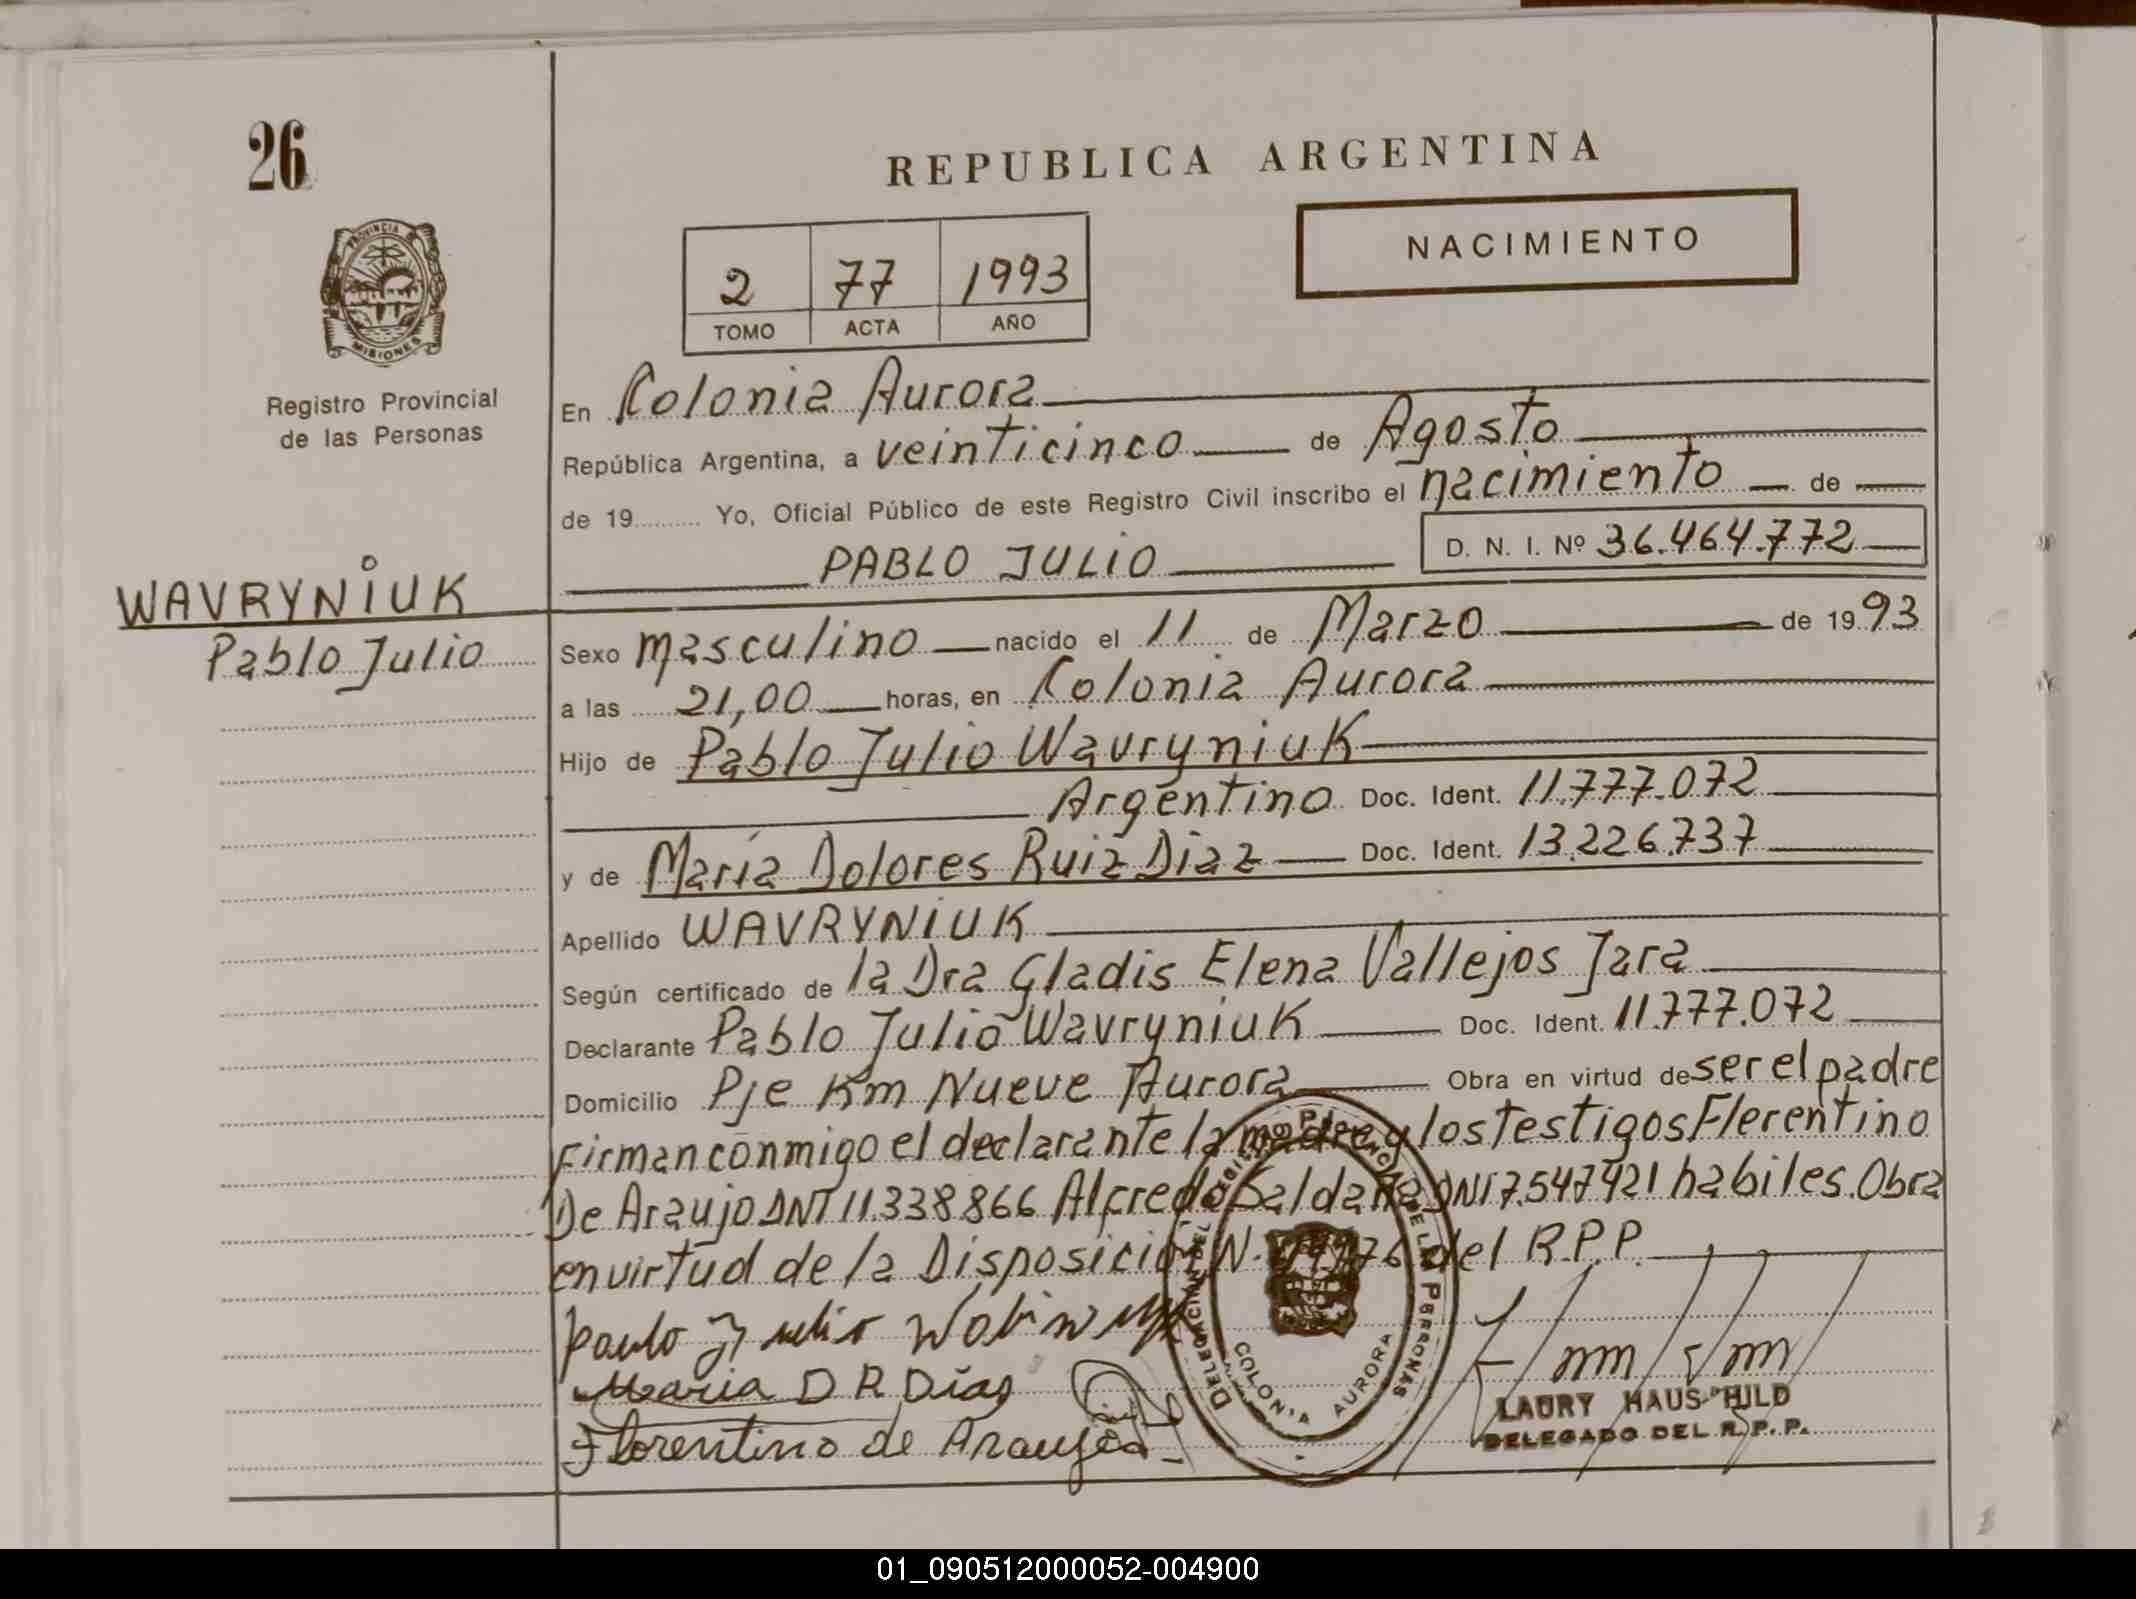 26
REPUBLICA ARGENTINA
NACIMIENTO
2 77 1993
TOMO ACTA AÑO
PROVINCIA DE
MISIONES
Registro Provincial
de las Personas
En Colonia Aurora
República Argentina, a veinticinco de Agosto
de 19.......... Yo, Oficial Público de este Registro Civil inscribo el nacimiento de
PABLO JULIO D. N. I. Nº 36.464.772
WAVRYNIUK
Pablo Julio
Sexo masculino nacido el 11 de Marzo de 1993
a las 21,00 horas, en Colonia Aurora
Hijo de Pablo Julio Wavryniuk
Argentino Doc. Ident. 11.777.072
y de María Dolores Ruiz Diaz Doc. Ident. 13.226.737
Apellido WAVRYNIUK
Según certificado de la Dra Gladis Elena Vallejos Jara
Declarante Pablo Julio Wavryniuk Doc. Ident. 11.777.072
Domicilio Pje Km Nueve Aurora Obra en virtud de ser el padre
Firman conmigo el declarante la madre y los testigos Flerentino
De Araujo DNI 11.338.866 Alfredo Saldaña DNI 7.547.421 habiles. Obra
en virtud de la Disposición N. del R.P.P.
Maria D R Días
Florentino de Araujo
DELEGACION DEL REGISTRO PROVINCIAL DE LAS PERSONAS
COLONIA AURORA
LAURY HAUSCHILD
DELEGADO DEL R.P.P.
01_090512000052-004900